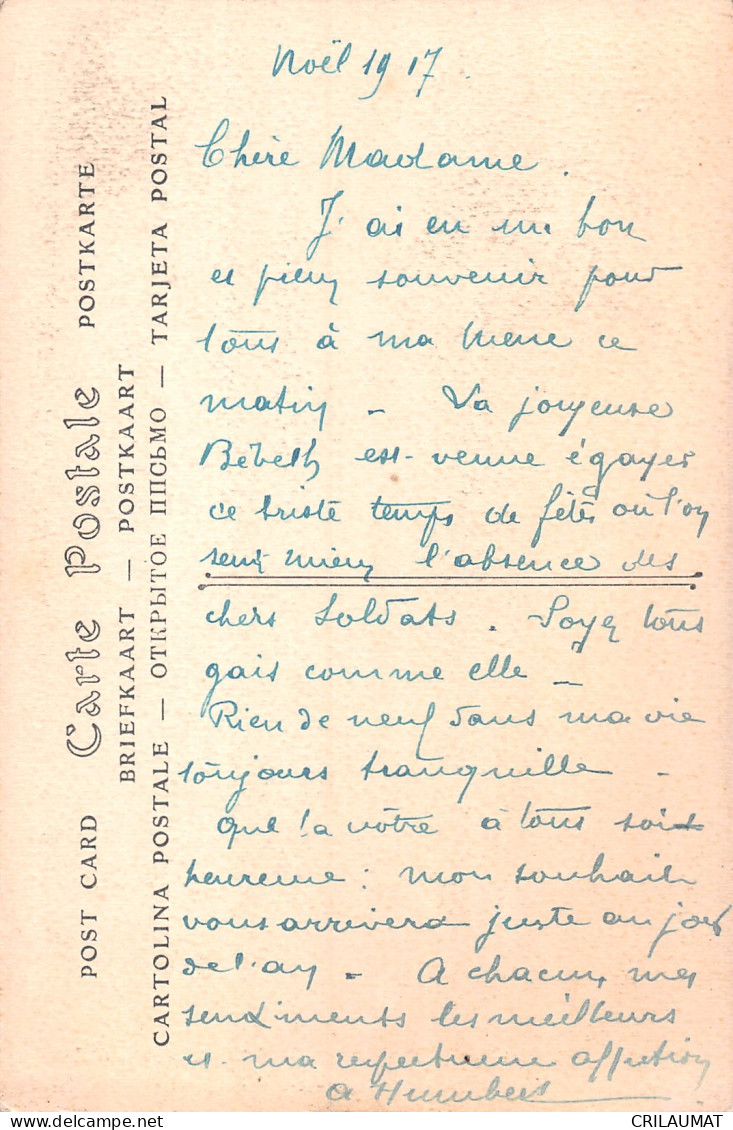 Noël 1917.
Chère Madame.
J'ai eu un bon
et pieux souvenir pour
tous à ma messe ce
matin - La joyeuse
Bébeth est venue égayer
ce triste temps de fêtes où l'on
sent mieux l'absence des
chers soldats. Soyez tous
gais comme elle -
Rien de neuf dans ma vie
toujours tranquille -
Que la vôtre à tous soit
heureuse : mon souhait
vous arrivera juste au jour
de l'an - A chacun, mes
sentiments les meilleurs
et ma respectueuse affection
A Humbert
POST CARD Carte Postale POSTKARTE
BRIEFKAART — POSTKAART
CARTOLINA POSTALE — ОТКРЫТОЕ ППСЬМО — TARJETA POSTAL
delcampe.net
CRILAUMAT